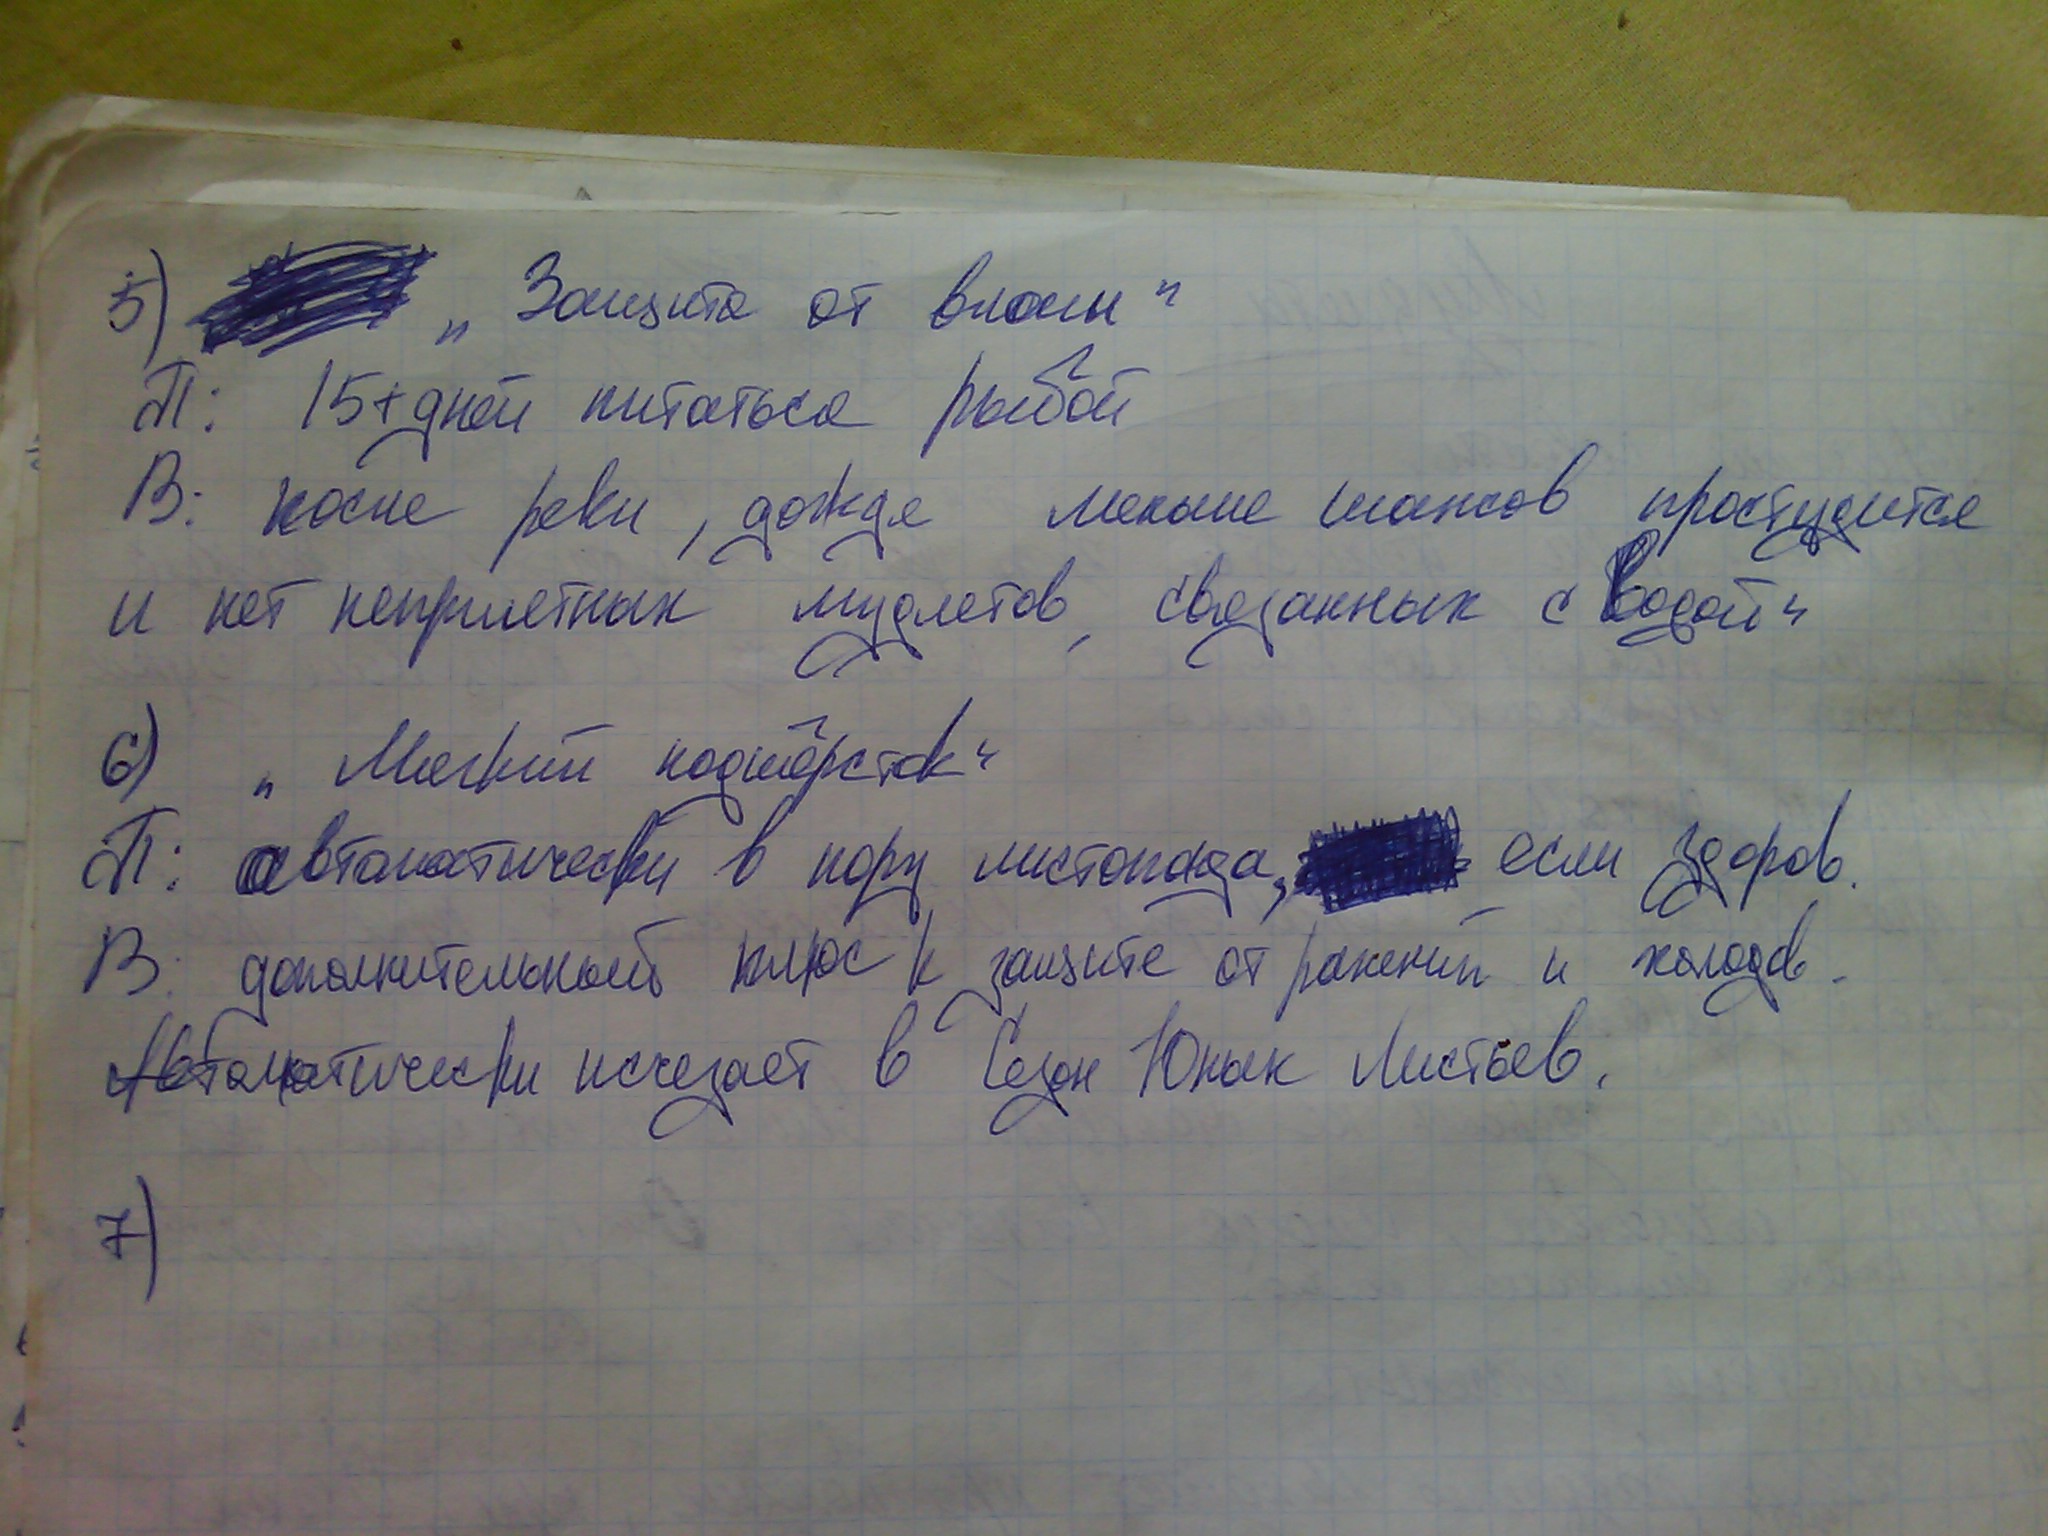 5) „Защита от влаги“
П: 15+дней питаться рыбой
В: после реки, дождя меньше шансов простудится
и нет неприятных мудлетов, связанных с водой“
6) „Мягкий подшёрсток“
П: автоматически в пору листопада, если здоров.
В: дополнительный плюс к защите от ранений и холодов.
Автоматически исчезает в Сезон Юных Листьев.
7)